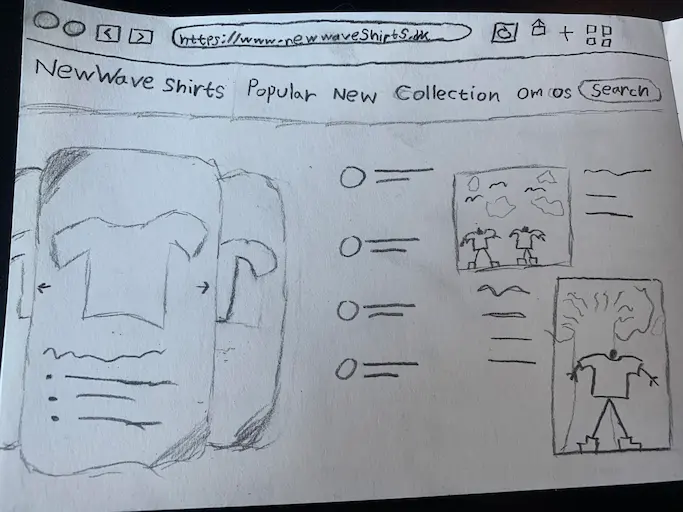 https://www.newwaveshirts.dk
NewWave Shirts Popular New Collection om os Search